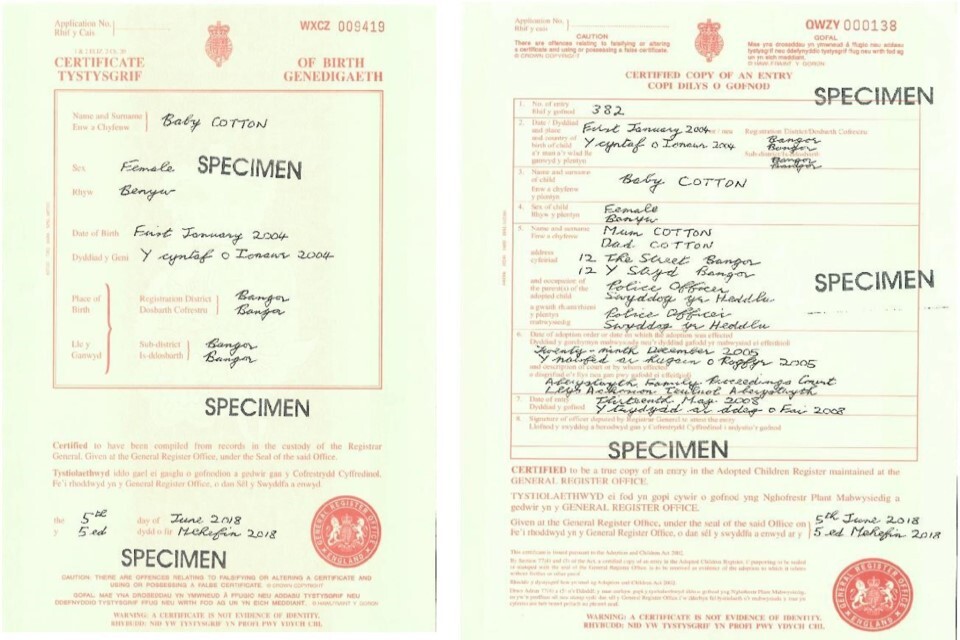 Application No.
Rhif y Cais
WXCZ 009419
CERTIFICATE
TYSTYSGRIF
OF BIRTH
GENEDIGAETH
Name and Surname
Enw a Chyfenw
Baby COTTON
SPECIMEN
Sex
Female
Rhyw
Benyw
Date of Birth
First January 2004
Dyddiad y Geni
Y cyntaf o Ionawr 2004
Place of
Birth
Registration District
Dosbarth Cofrestru
Bangor
Bangor
Lle y
Ganwyd
Sub-district
Is-ddosbarth
Bangor
Bangor
SPECIMEN
Certified to have been compiled from records in the custody of the Registrar
General. Given at the General Register Office, under the Seal of the said Office.
Tystiolaethwyd iddo gael ei gasglu o gofnodion a gedwir gan y Cofrestrydd Cyffredinol.
Fe'i rhoddwyd yn y General Register Office, o dan Sêl y Swyddfa a enwyd.
the 5th day of June 2018
y 5ed dydd o fis Mehefin 2018
GENERAL REGISTER OFFICE
ENGLAND
SPECIMEN
CAUTION: THERE ARE OFFENCES RELATING TO FALSIFYING OR ALTERING A CERTIFICATE AND
USING OR POSSESSING A FALSE CERTIFICATE. © CROWN COPYRIGHT
GOFAL: MAE YNA DROSEDDAU YN YMWNEUD Â FFUGIO NEU ADDASU TYSTYSGRIF NEU
DDEFNYDDIO TYSTYSGRIF FFUG NEU WRTH FOD AG UN YN EICH MEDDIANT. © HAWLFRAINT Y GORON
WARNING: A CERTIFICATE IS NOT EVIDENCE OF IDENTITY.
RHYBUDD: NID YW TYSTYSGRIF YN PROFI PWY YDYCH CHI.
Application No.
Rhif y Cais
QWZY 000138
CAUTION
There are offences relating to falsifying or altering
a certificate and using or possessing
a false certificate.
© CROWN COPYRIGHT
GOFAL
Mae yna droseddau yn ymwneud â ffugio neu addasu
tystysgrif neu ddefnyddio tystysgrif ffug neu wrth fod ag
un yn eich meddiant.
© HAWLFRAINT Y GORON
CERTIFIED COPY OF AN ENTRY
COPI DILYS O GOFNOD
SPECIMEN
1. No. of entry
Rhif y gofnod
382
2. Date / Dyddiad
and place
and country of
birth of child
First January 2004
Y cyntaf o Ionawr 2004
Registration District/Dosbarth Cofrestru
Bangor
Bangor
Sub-district/Is-ddosbarth
Bangor
Bangor
3. Name and surname
of child
Enw a chyfenw
y plentyn
Baby COTTON
4. Sex of child
Rhyw y plentyn
Female
Benyw
5. Name and surname
Enw a chyfenw
Mum COTTON
Dad COTTON
address
cyfeiriad
12 The Street Bangor
12 Y Stryd Bangor
SPECIMEN
and occupation of
the parent(s) of the
adopted child
Police Officer
Swyddog yr Heddlu
Police Officer
Swyddog yr Heddlu
6. Date of adoption order
Twenty-ninth December 2005
Y nawfed ar hugain o Ragfyr 2005
and description of court by which effected
Aberystwyth Family Proceedings Court
7. Date of entry
Dyddiad y gofnod
Thirteenth May 2008
Y trydydd ar ddeg o Fai 2008
8. Signature of officer deputed by Registrar General to attest the entry
SPECIMEN
CERTIFIED to be a true copy of an entry in the Adopted Children Register maintained at the
GENERAL REGISTER OFFICE.
TYSTIOLAETHWYD ei fod yn gopi cywir o gofnod yng Nghofrestr Plant Mabwysiedig a
gedwir yn y GENERAL REGISTER OFFICE.
Given at the General Register Office, under the seal of the said Office on
Fe'i rhoddwyd yn y General Register Office, o dan sêl y swyddfa a enwyd ar y
5th June 2018
5ed Mehefin 2018
This certificate is issued pursuant to the Adoption and Children Act 2002.
GENERAL REGISTER OFFICE
ENGLAND
WARNING: A CERTIFICATE IS NOT EVIDENCE OF IDENTITY.
RHYBUDD: NID YW TYSTYSGRIF YN PROFI PWY YDYCH CHI.